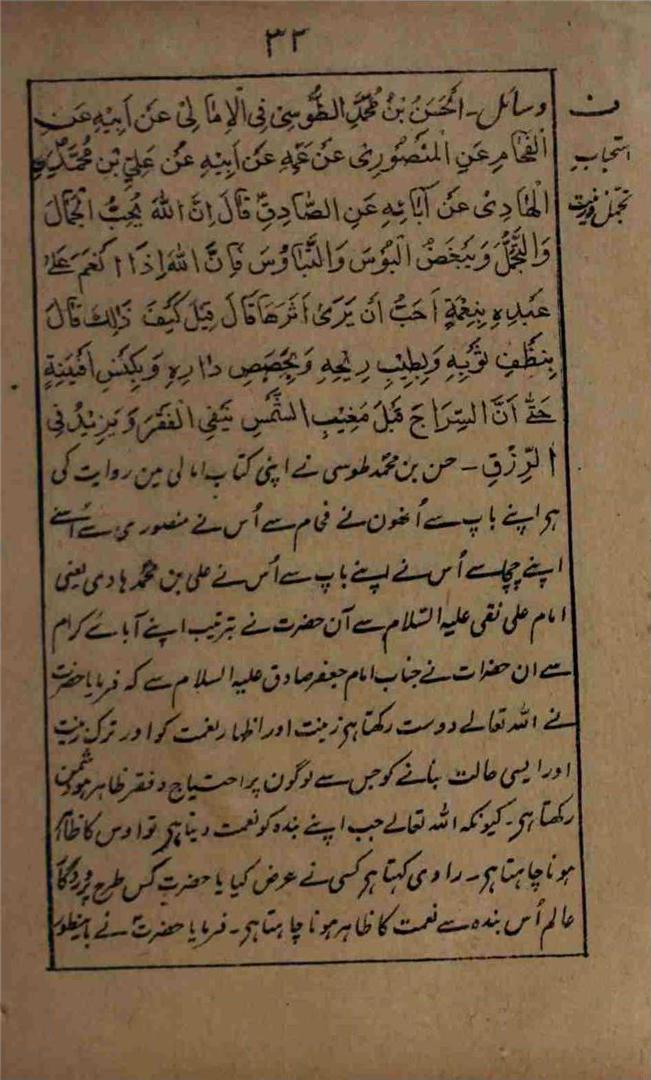 ۳۲
ف
استحباب
تجمل وزینت
وسائل - اَلحَسَنُ بْنُ مُحَمَّدٍ الطُّوسِیُّ فِی الْاِمَالِیْ عَنْ اَبِیْهِ عَنِ
الْفَحَّامِ عَنِ الْمَنْصُوْرِیْ عَنْ عَمِّهِ عَنْ اَبِیْهِ عَنْ عَلِیِّ بْنِ مُحَمَّدٍ
الْهَادِیْ عَنْ آبَائِهِ عَنِ الصَّادِقِ قَالَ اِنَّ اللهَ یُحِبُّ الْجَمَالَ
وَالتَّجَمُّلَ وَیَبْغَضُ الْبُؤْسَ وَالتَّبَاؤُسَ فَاِنَّ اللهَ اِذَا اَنْعَمَ عَلٰی
عَبْدِهِ بِنِعْمَةٍ اَحَبَّ اَنْ یَرٰی اَثَرَهَا قَالَ قِیْلَ کَیْفَ ذٰلِکَ قَالَ
یُنَظِّفُ ثَوْبَهُ وَیُطَیِّبُ رِیْحَهُ وَیُجَصِّصُ دَارَهُ وَیَکْنُسُ اَفْنِیَتَهُ
حَتّٰی اَنَّ السِّرَاجَ قَبْلَ مَغِیْبِ الشَّمْسِ یَنْفِی الْفَقْرَ وَیَزِیْدُ فِی
الرِّزْقِ - حسن بن محمد طوسی نے اپنی کتاب امالی مین روایت کی
ہر اپنے باپ سے اُنھون نے فحام سے اُس نے منصوری سے اُسنے
اپنے چچا سے اُس نے اپنے باپ سے اُس نے علی بن محمد ہادی یعنی
امام علی نقی علیہ السّلام سے آن حضرت نے بترتیب اپنے آبائے کرام
سے ان حضرات نے جناب امام جعفر صادق علیہ السلام سے کہ فرمایا حضرت
نے اللہ تعالے دوست رکھتا ہر زینت اور اظہار نعمت کو اور ترک زینت
اور ایسی حالت بنانے کو جس سے لوگون پر احتیاج و فقر ظاہر ہو دشمن
رکھتا ہر - کیونکہ اللہ تعالے جب اپنے بندہ کو نعمت دیتا ہر تو اوس کا ظاہر
ہونا چاہتا ہر - راوی کہتا ہر کسی نے عرض کیا یا حضرت کس طرح پروردگار
عالم اُس بندہ سے نعمت کا ظاہر ہونا چاہتا ہر - فرمایا حضرت نے باینطور